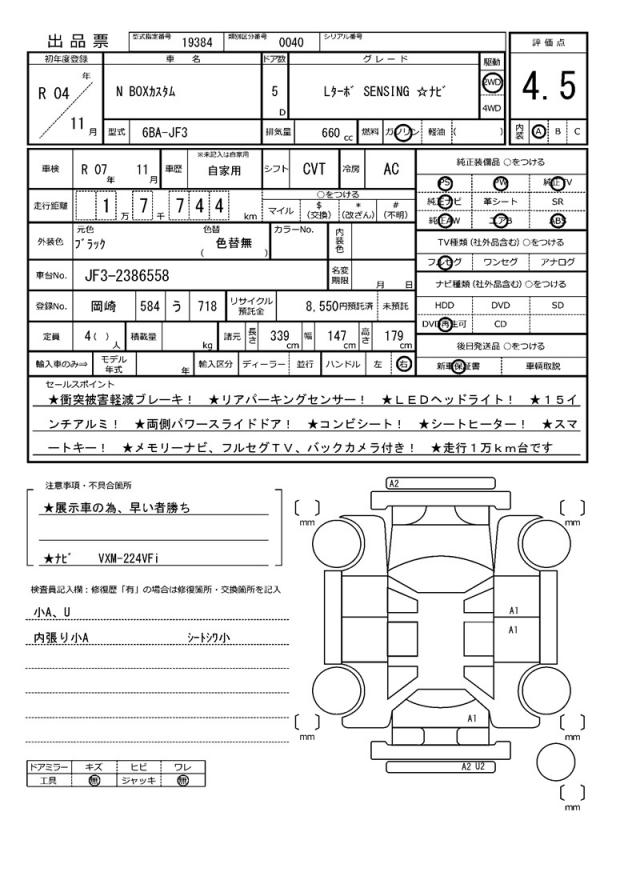 出品票 型式指定番号 19384 類別区分番号 0040 シリアル番号
初年度登録 車名 ドア数 グレード 駆動 評価点
R 04 年 11 月 N BOXカスタム 5 D Lターボ SENSING ☆ナビ 2WD 4WD 4.5
型式 6BA-JF3 排気量 660 cc 燃料 ガソリン 軽油 ( ) 内装 A B C
車検 R 07 年 11 月 車歴 ※未記入は自家用 自家用 シフト CVT 冷房 AC
純正装備品 ○をつける
PS PW 純正TV
純正ナビ 革シート SR
純正AW エアB ABS
走行距離 1 万 7 千 7 4 4 km
○をつける
マイル $ (交換) * (改ざん) # (不明)
外装色 元色 ブラック 色替 色替無 ( ) カラーNo. 内装色
TV種類 (社外品含む) ○をつける
フルセグ ワンセグ アナログ
車台No. JF3-2386558 名変期限 月 日
ナビ種類 (社外品含む) ○をつける
HDD DVD SD
DVD再生可 CD
登録No. 岡崎 584 う 718 リサイクル預託金 8,550円預託済 未預託
定員 4 ( ) 人 積載量 kg 諸元 長さ 339 cm 幅 147 cm 高さ 179 cm
後日発送品 ○をつける
新車保証書 車輌取説
輸入車のみ⇒ モデル年式 年 輸入区分 ディーラー 並行 ハンドル 左 右
セールスポイント
★衝突被害軽減ブレーキ! ★リアパーキングセンサー! ★LEDヘッドライト! ★15イ
ンチアルミ! ★両側パワースライドドア! ★コンビシート! ★シートヒーター! ★スマ
ートキー! ★メモリーナビ、フルセグTV、バックカメラ付き! ★走行1万km台です
注意事項・不具合箇所
★展示車の為、早い者勝ち
★ナビ VXM-224VFi
検査員記入欄:修復歴「有」の場合は修復箇所・交換箇所を記入
小A、U
内張り小A シートシワ小
ドアミラー キズ ヒビ ワレ
工具 無 ジャッキ 無
A2
[ ] mm [ ] mm
A1
A1
A1
[ ] mm [ ] mm
A2 U2
[ ] mm